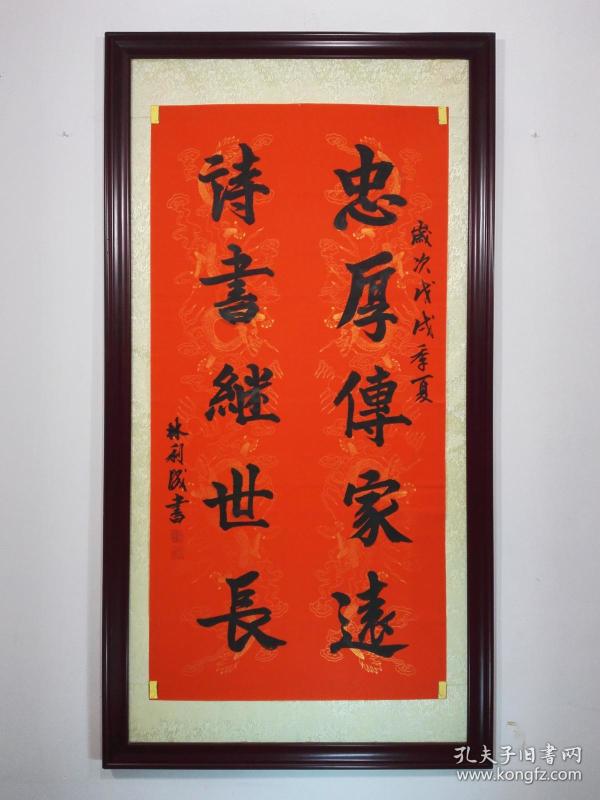 忠厚傳家遠
歲次戊戌季夏
詩書繼世長
林利書
孔夫子旧書网
www.kongfz.com